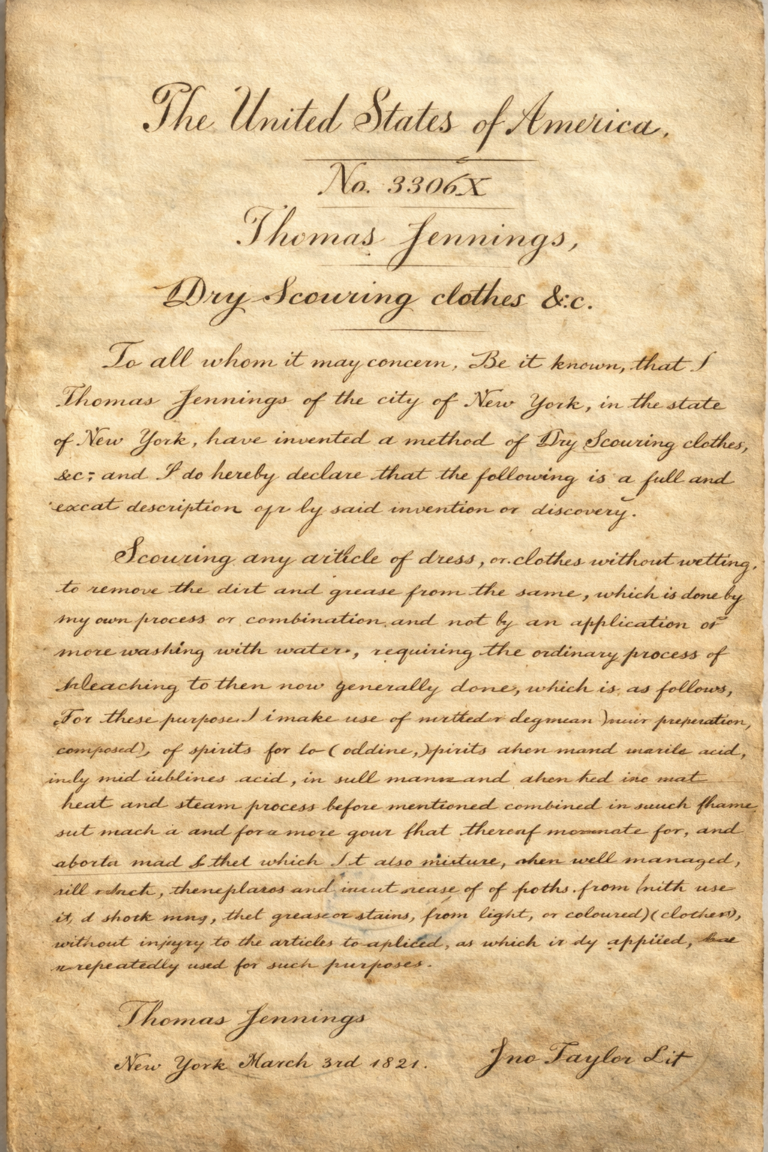 The United States of America.
No. 3306X
Thomas Jennings,
Dry Scouring clothes &c.
To all whom it may concern, Be it known, that I
Thomas Jennings of the city of New York, in the state
of New York, have invented a method of Dry Scouring clothes,
&c; and I do hereby declare that the following is a full and
excat description by said invention or discovery.
Scouring any article of dress, or clothes without wetting,
to remove the dirt and grease from the same, which is done by
my own process or combination and not by an application of
more washing with water, requiring the ordinary process of
bleaching to then now generally done, which is, as follows,
For these purpose I make use of preperation,
composed), of spirits for to (oddine,) acid,
mid acid, in and
heat and steam process before mentioned combined in
and for a more gour that for, and
mad & thet which It also mixture, when well managed,
and of of from use
it, d shork thet grease or stains, from light, or coloured) (clothes),
without injury to the articles to as which is dy
repeatedly used for such purposes.
Thomas Jennings
New York March 3rd 1821.
Jno Taylor Lit